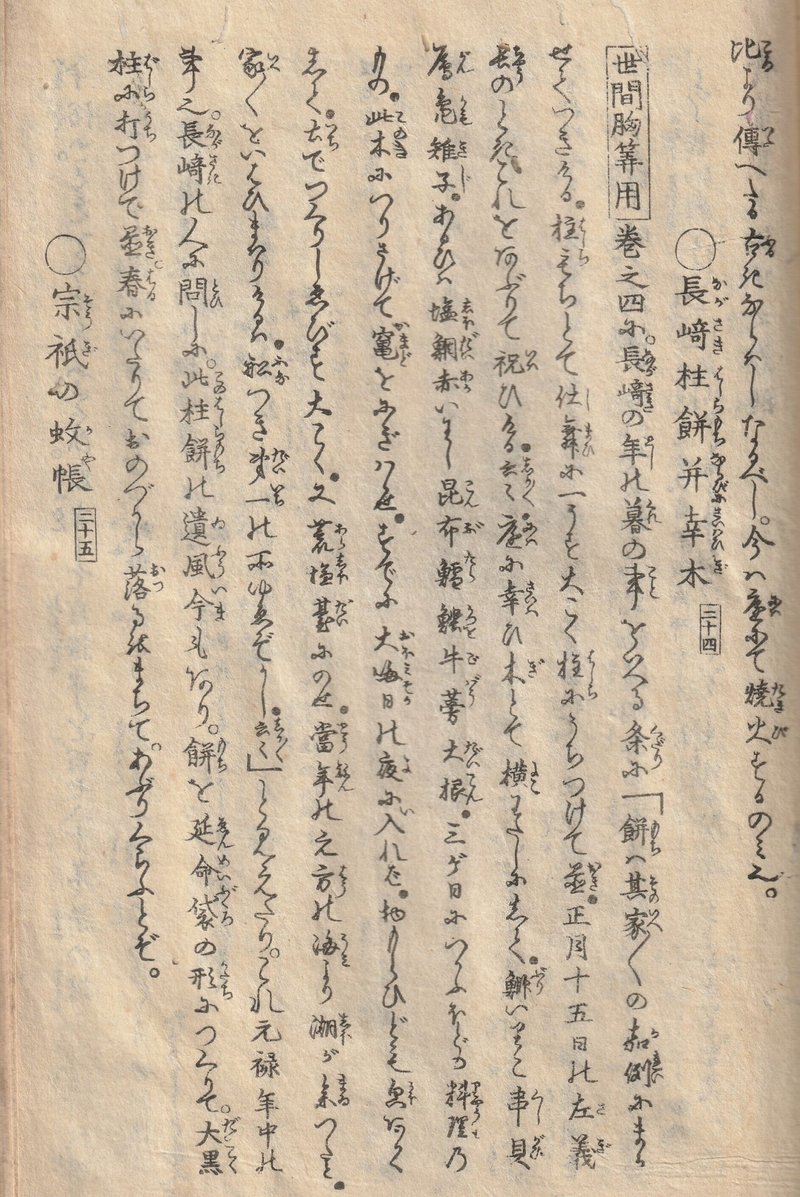 此より傳へたる古きならはしなるべし。今は庭にて燒火するのみ也。
○長崎柱餅并幸木 二十四
世間胸筭用 巻之四に。長崎の年の暮の事をいへる条に「餅は其家〳〵の嘉例にまか
せてつきける。柱もちとて仕舞に一うす大こく柱にうちつけて置。正月十五日の左義
長のときこれをあぶりて祝ひける云々。庭に幸ひ木とて横わたしにして。鰤いりこ串貝
鴈鳬雉子。あるひは塩鯛赤いわし昆布鱈鰹牛蒡大根。三ケ日につかふほどの料理乃
もの。此木につりさげて竃をにぎはせ。すでに大晦日の夜に入れば。物もらひども面あかく
して。土でつくりしゑびす大こく。又荒塩臺にのせ。當年の元方の海より潮が参つたと。
家〳〵をいはひまはりけるは。船つき第一の所ゆゑぞかし云々」と見えたり。これ元禄年中の
事也。長崎の人に問しに。此柱餅の遺風今もあり。餅を延命袋の形につくりて。大黒
柱に打つけて置。春にいたりておのづから落るをまちて。あぶりくらふとぞ。
○宗祇の蚊帳 二十五